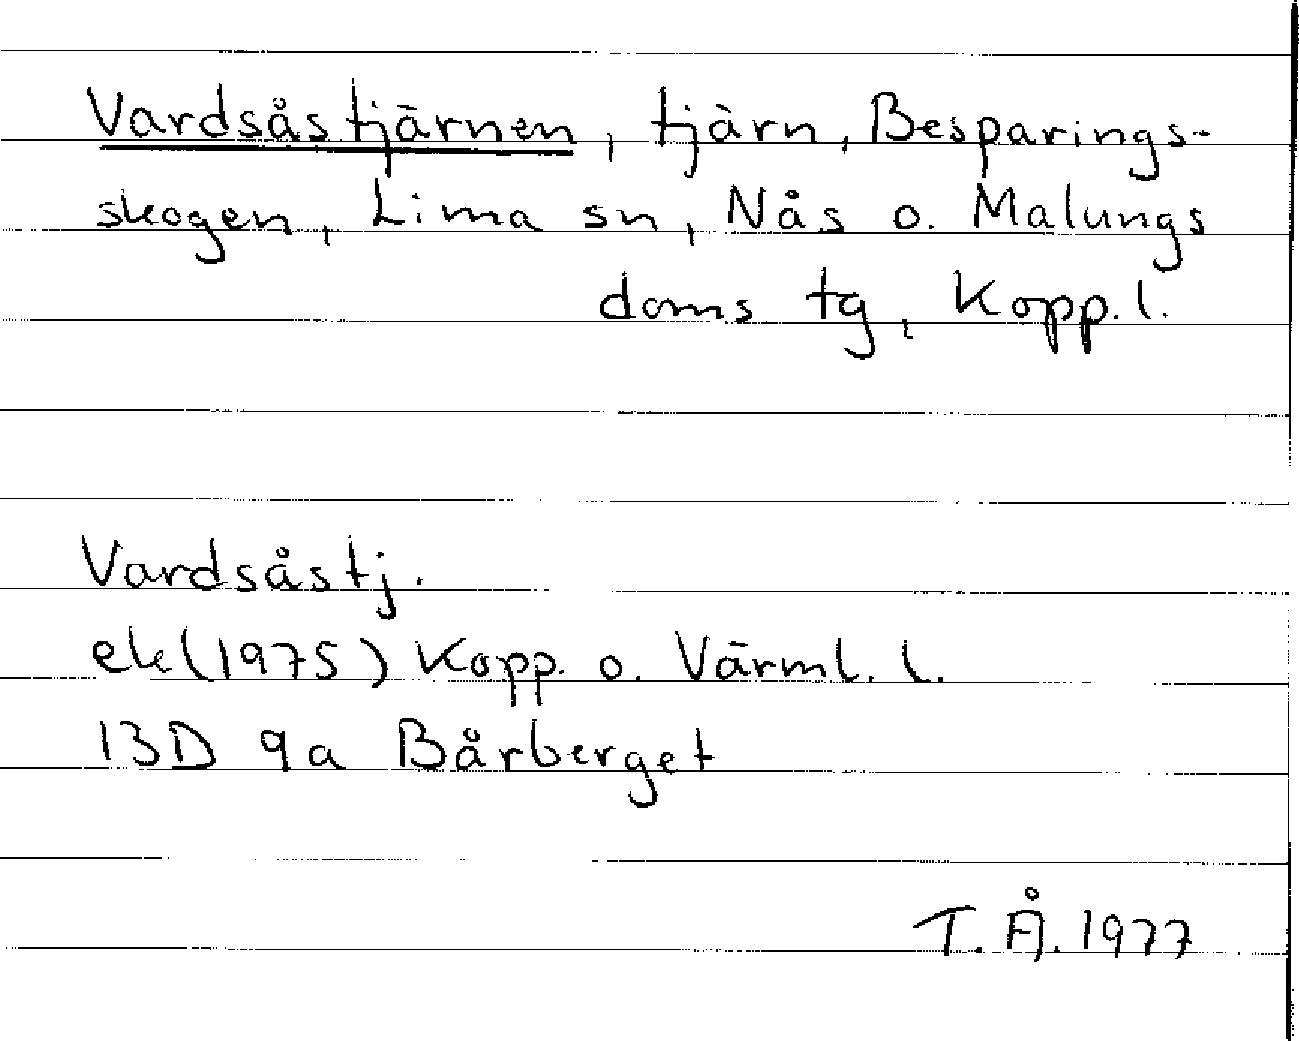 Vardsåstjärnen, tjärn, Besparings-
skogen, Lima sn, Nås o. Malungs
doms tg, Kopp. l.
Vardsåstj.
ek (1975) Kopp. o. Värml. l.
13D 9a Bårberget
T. Å. 1977